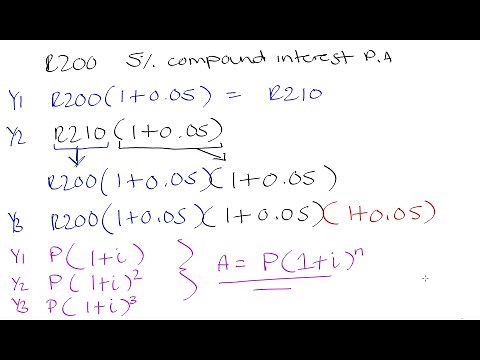 R200 5% compound interest P.A
Y1 R200(1+0.05) = R210
Y2 R210(1+0.05)
R200(1+0.05)(1+0.05)
Y3 R200(1+0.05)(1+0.05)(1+0.05)
Y1 P(1+i)
Y2 P(1+i)²
Y3 P(1+i)³
A = P(1+i)ⁿ